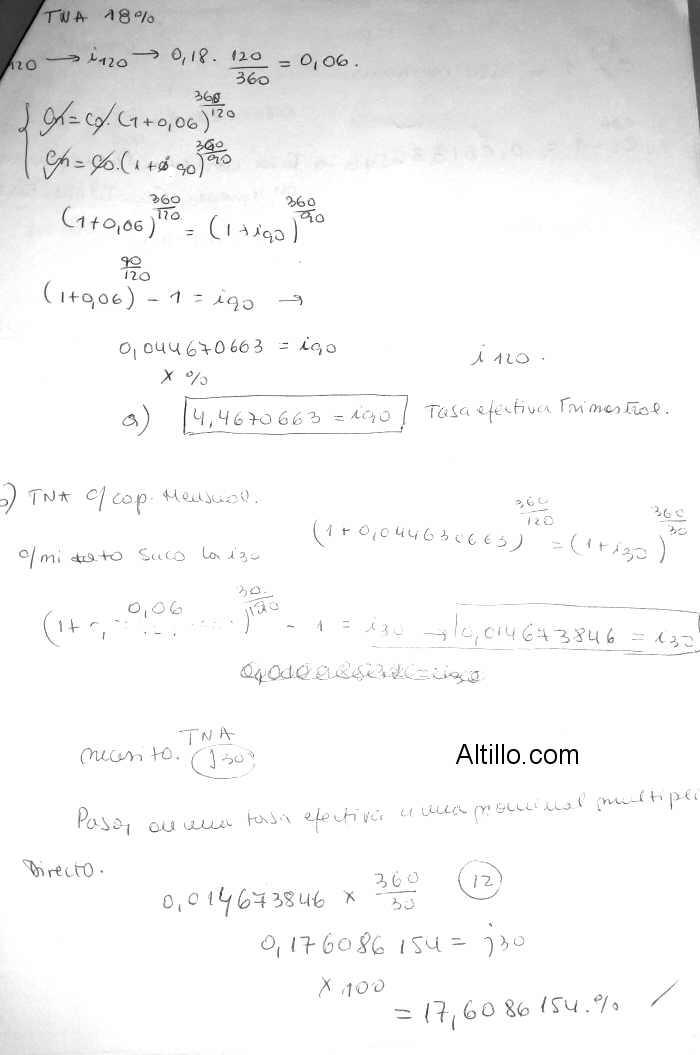 TNA 18%
120 → i120 → 0,18 · 120/360 = 0,06.
{ Cn = C0 · (1+0,06)^360/120
Cn = C0 · (1+i 90)^360/90
(1+0,06)^360/120 = (1+i90)^360/90
(1+0,06)^90/120 - 1 = i90 →
0,044670663 = i90
i 120.
x %
a) 4,4670663 = i90 Tasa efectiva Trimestral.
b) TNA c/cap. Mensual.
(1+0,044630663)^360/120 = (1+i30)^360/30
c/mi dato saco la i30
(1+0,06)^30/120 - 1 = i30 → 0,014673846 = i30
necesito. TNA J30?
Pasar de una tasa efectiva a una nominal multipli
Directo.
0,014673846 x 360/30 12
0,176086154 = j30
x 100
= 17,6086154.%
Altillo.com